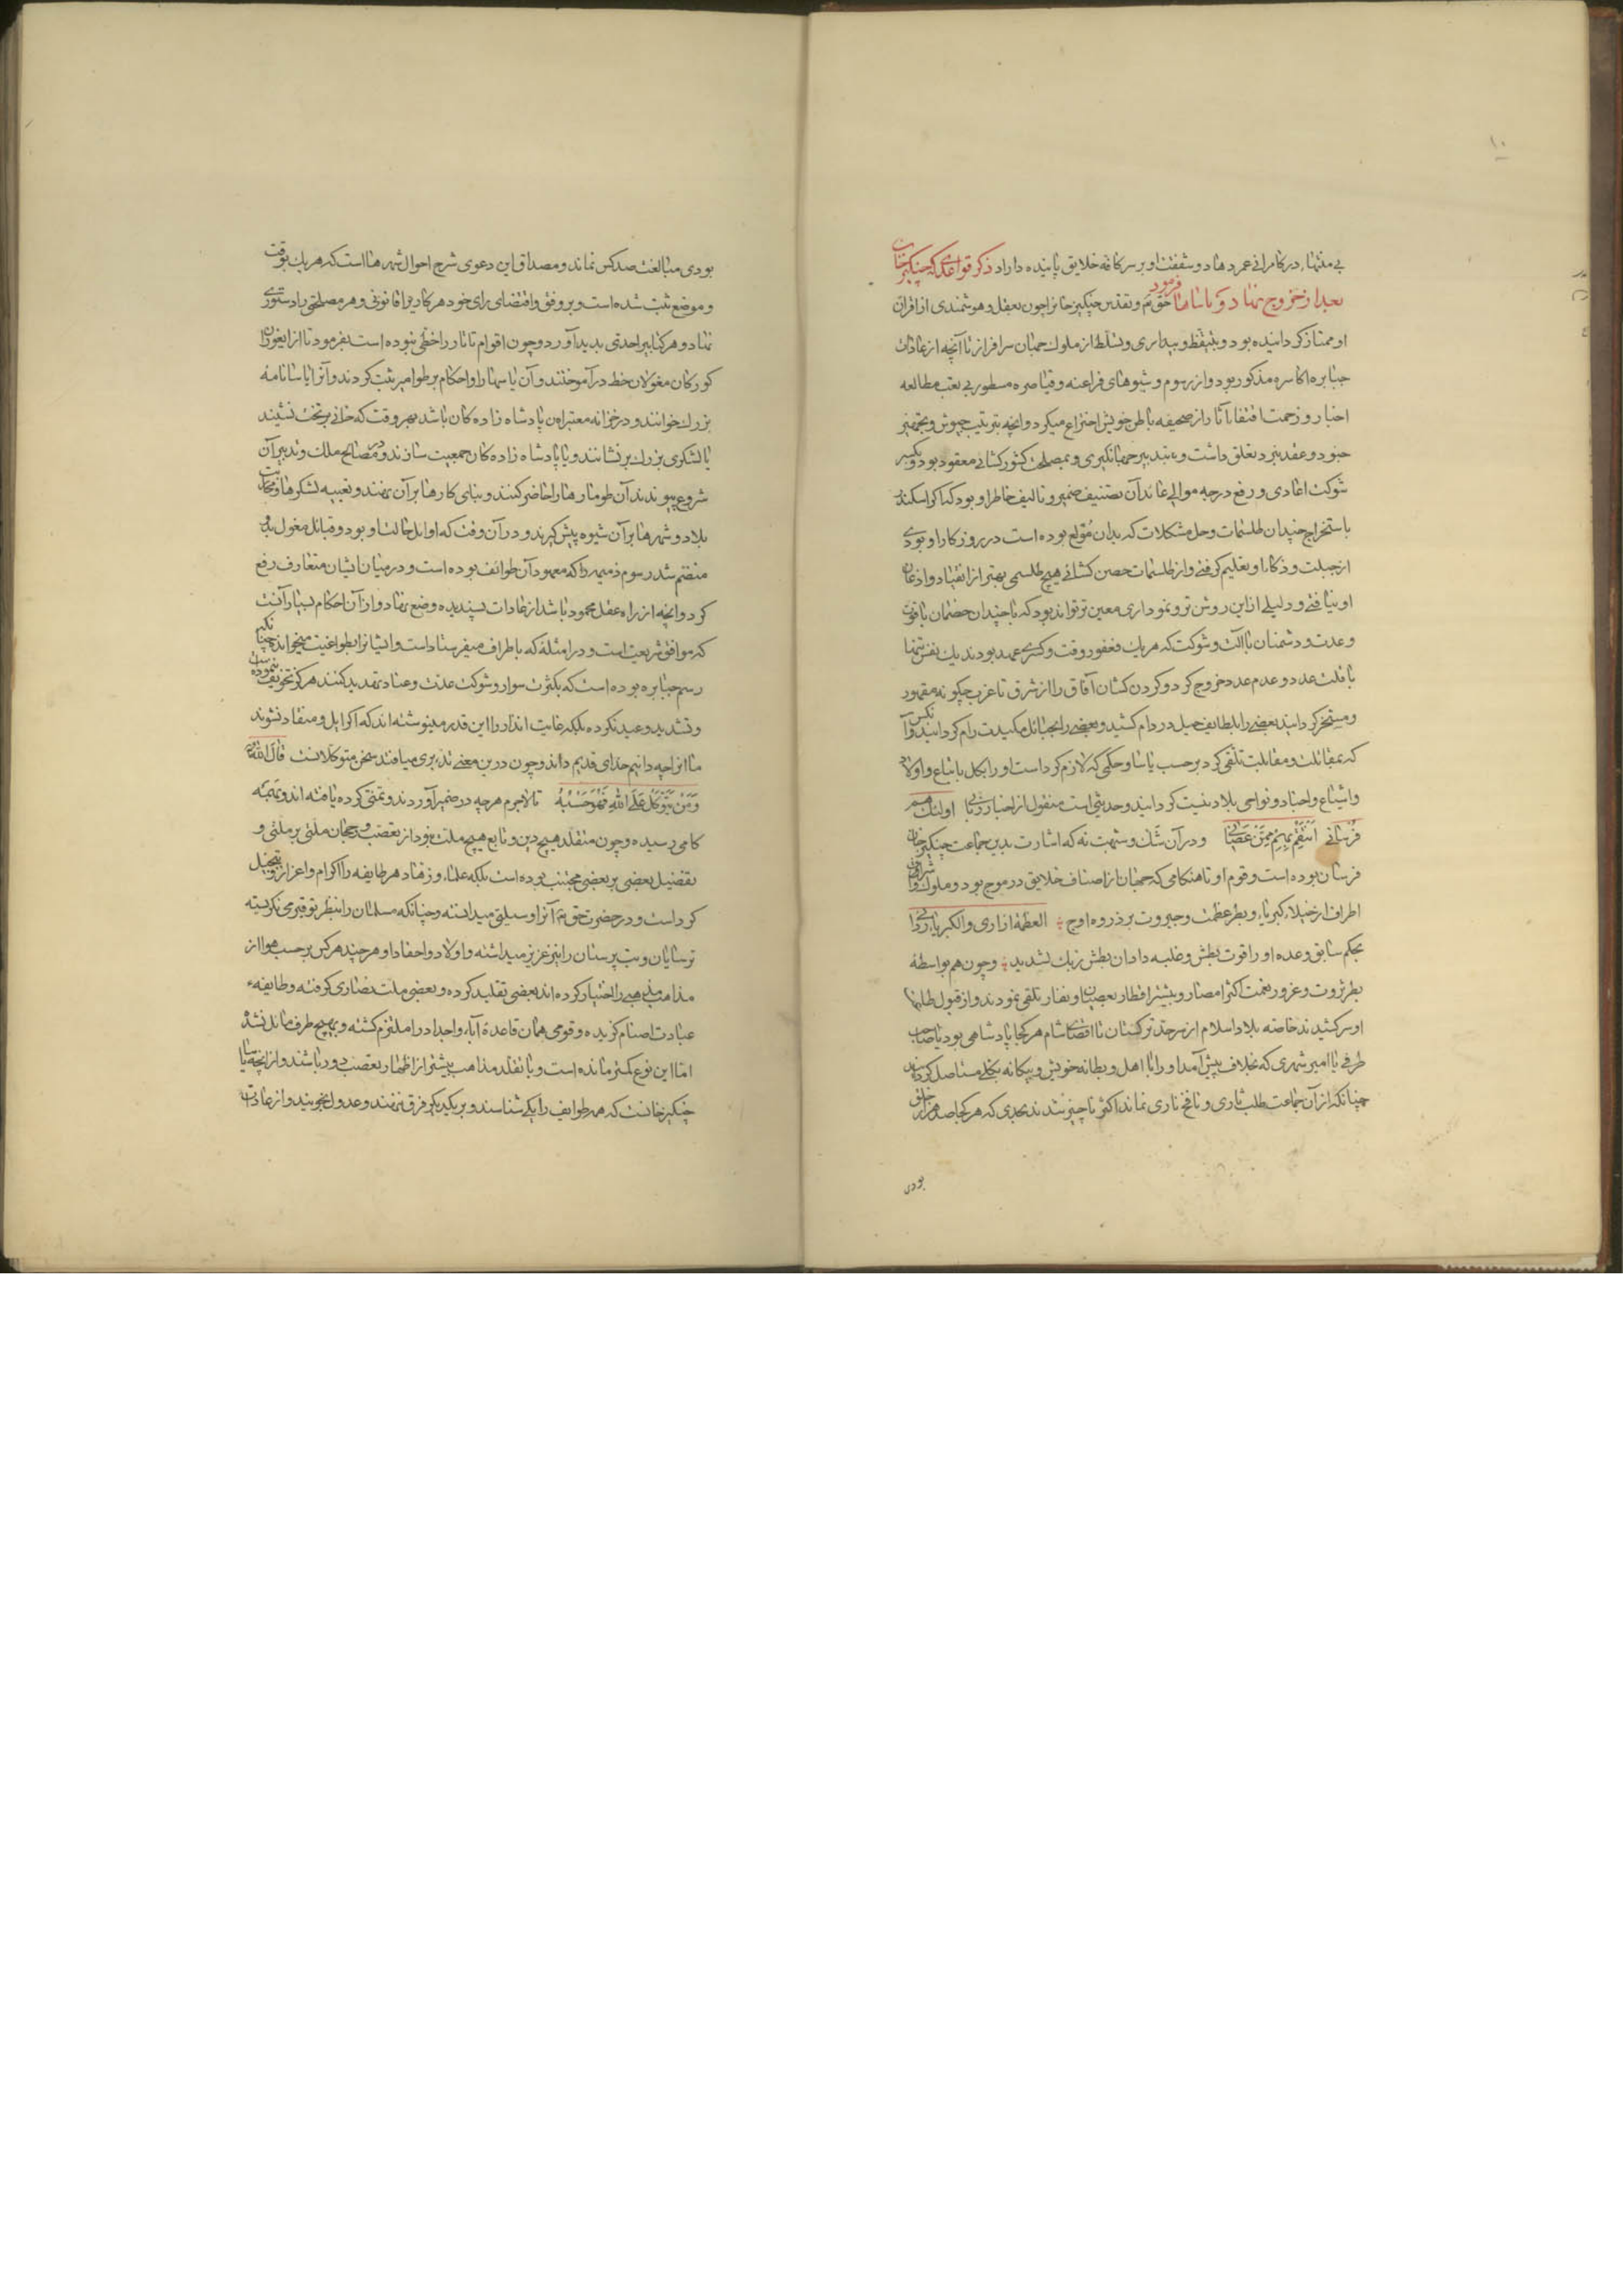 ۱۰
بی منتهاء در کامرانی عمر دهاد و شفقت او بر سر کافه خلایق پاینده داراد ذکر قواعدی که چنگیز خان
بعد از خروج نهاد و یاساها فرمود حق تع و تقدس چنگیز خانرا چون بعقل و هوشمندی از اقران
او ممتاز کردانیده بود و بتیقظ و بیداری و تسلط از ملوک جهان سرافراز تا آنچه از عادات
جبابره اکاسره مذکور بود و از رسوم و شیوهای فراعنه و قیاصره مسطور بی تعب مطالعه
اخبار و زحمت اقتفا باثار از صحیفه باطن خویش اختراع میکرد و انچه بترتیب جیوش و بتجهیز
جنود و عقد بنود تعلق داشت و بتدبیر جهانکیری و بمصلحت کشورکشائی معقود بود و بکسر
شوکت اعادی و رفع درجه موالی عائد آن تصنیف ضمیر و تالیف خاطر او بود که اکر اسکندر
باستخراج چندان طلسمات و حل مشکلات که بدان مولع بوده است در روزکار او بودی
از جبلت و ذکاء او تعلیم کرفتی و از طلسمات حصن کشائی هیچ طلسمی بهتر از انقیاد و اذعان
او نیافتی و دلیلی از این روشن تر و نموداری معین تر تواند بود که با چندان خصمان با قوت
و عدت و دشمنان با آلت و شوکت که هر یک فغفور وقت و کسری عهد بودند یک نفس تنها
با قلت عدد و عدم عدد خروج کرد و کردن کشان آفاق را از شرق تا غرب چکونه مقهور
و مسخر کردانید بعضی را بلطایف حیل در دام کشید و بعضی را بحبائل مکیدت رام کردانید و آنکس
که بمقاتلت و مقابلت تلقی کرد بر حسب یاسا و حکمی که لازم کرد است او را بکل با تباع و اولاد
و اشیاع و اجناد و نواحی بلاد نیست کردانید و حدیثی است منقول از اخبار ربانی اولئک هم
فرسانی انتقم بهم ممن عصانی و در آن شک و شبهت نه که اشارت بدین جماعت چنگیز خان
فرسان بوده است و قوم او تا هنکامی که جهان از اصناف خلایق در موج بود و ملوک و اشراف
اطراف از خیلاء کبریاء و بطر عظمت و جبروت بر ذروه اوج العظمة ازاری والکبریاء ردائی
بحکم سابق وعده او را قوت بطش و غلبه داد ان بطش ربک لشدید و چون هم بواسطهٔ
بطر ثروت و غرور نعمت اکثر امصار و بیشتر اقطار بعصیان و نفار تلقی نمودند و از قبول طاعت
او سر کشیدند خاصه بلاد اسلام از سرحد ترکستان تا اقصای شام هر کجا پادشاهی بود یا صاحب
طرفی یا امیر شهری که بخلاف پیش آمد او را با اهل و بطانه خویش و بیکانه بکلی مستاصل کردند
چنانکه از آن جماعت طلب ثاری و نافخ ناری نماند اکثر ناچیز شدند بحدی که هر کجا صد هزار خلق
بودی
بودی مبالغت صد کس نماند و مصداق این دعوی شرح احوال شهرهاست که هر یک بوقت
و موضع ثبت شده است و بر وفق و اقتضای رای خود هر کاری را قانونی و هر مصلحتی را دستوری
نهاد و هر کنایر احدی پدید آورد و چون اقوام تاتار را خطی نبوده است بفرمود تا از ایغوران
کودکان مغولان خط درآموختند و آن یاسها را و احکام بر طوامیر ثبت کردند و آنرا یاسانامه
بزرک خوانند و در خزانه معتبران پادشاه زاده کان باشد بهر وقت که خانی بر تخت نشیند
یا لشکری بزرک برنشانند و یا پادشاه زاده کان جمعیت سازند و در مصالح ملک و تدبیر آن
شروع پیوندند آن طومارها را حاضر کنند و بنای کارها بر آن نهند و تعبیه لشکرها و تخریب
بلاد و شهرها بر آن شیوه پیش کیرند و در آن وقت که اوایل حالت او بود و قبائل مغول بدو
منضم شد رسوم ذمیمه را که معهود آن طوائف بوده است و در میان ایشان متعارف رفع
کرد و انچه از راه عقل محمود باشد از عادات پسندیده وضع نهاد و از آن احکام بسیار آنست
که موافق شریعت است و در امثله که باطراف میفرستاد است و ایشانرا بطواغیت میخواند چنانکه
رسم جبابره بوده است که بکثرت سوار و شوکت عدت و عتاد تهدید کنند هرکز تخویف ننموده
و تشدید و عید نکرده بلکه غایت انذار را این قدر مینوشته اند که اکر ایل و منقاد نشوند
ما انرا چه دانیم خدای قدیم داند و چون درین معنی تدبری میافتد سخن متوکلانست قال الله تع
ومن یتوکل علی الله فهو حسبه تا لاجرم هرچه در ضمیر آوردند و تمنی کرده یافته اند و بهمه
کامی رسیده و چون متقلد هیچ دین و تابع هیچ ملت نبود از تعصب و رجحان ملتی بر ملتی و
تفضیل بعضی بر بعضی مجتنب بوده است بلکه علماء و زهاد هر طایفه را اکرام و اعزاز و تبجیل
کرد است و در حضرت حق تع آنرا وسیلتی میدانسته و چنانکه مسلمان را بنظر توقیر می نکریسته
ترسایان و بت پرستان را نیز عزیز میداشته و اولاد و احفاد او هر چند هر کس بر حسب هوا از
مذاهب مذهبی را اختیار کرده اند بعضی تقلید کرده و بعضی ملت نصاری کرفته و طایفهء
عبادت اصنام کزیده و قومی همان قاعدهٔ آباء و اجداد را ملتزم کشته و بهیچ طرف مائل نشده
اما این نوع کمتر مانده است و با تقلد مذاهب بیشتر از اظهار تعصب دور باشند و از انچه یاسا
چنگیز خانست که همه طوایف را یکی شناسند و بر یکدیکر فرق ننهند و عدول نجویند و از عادت